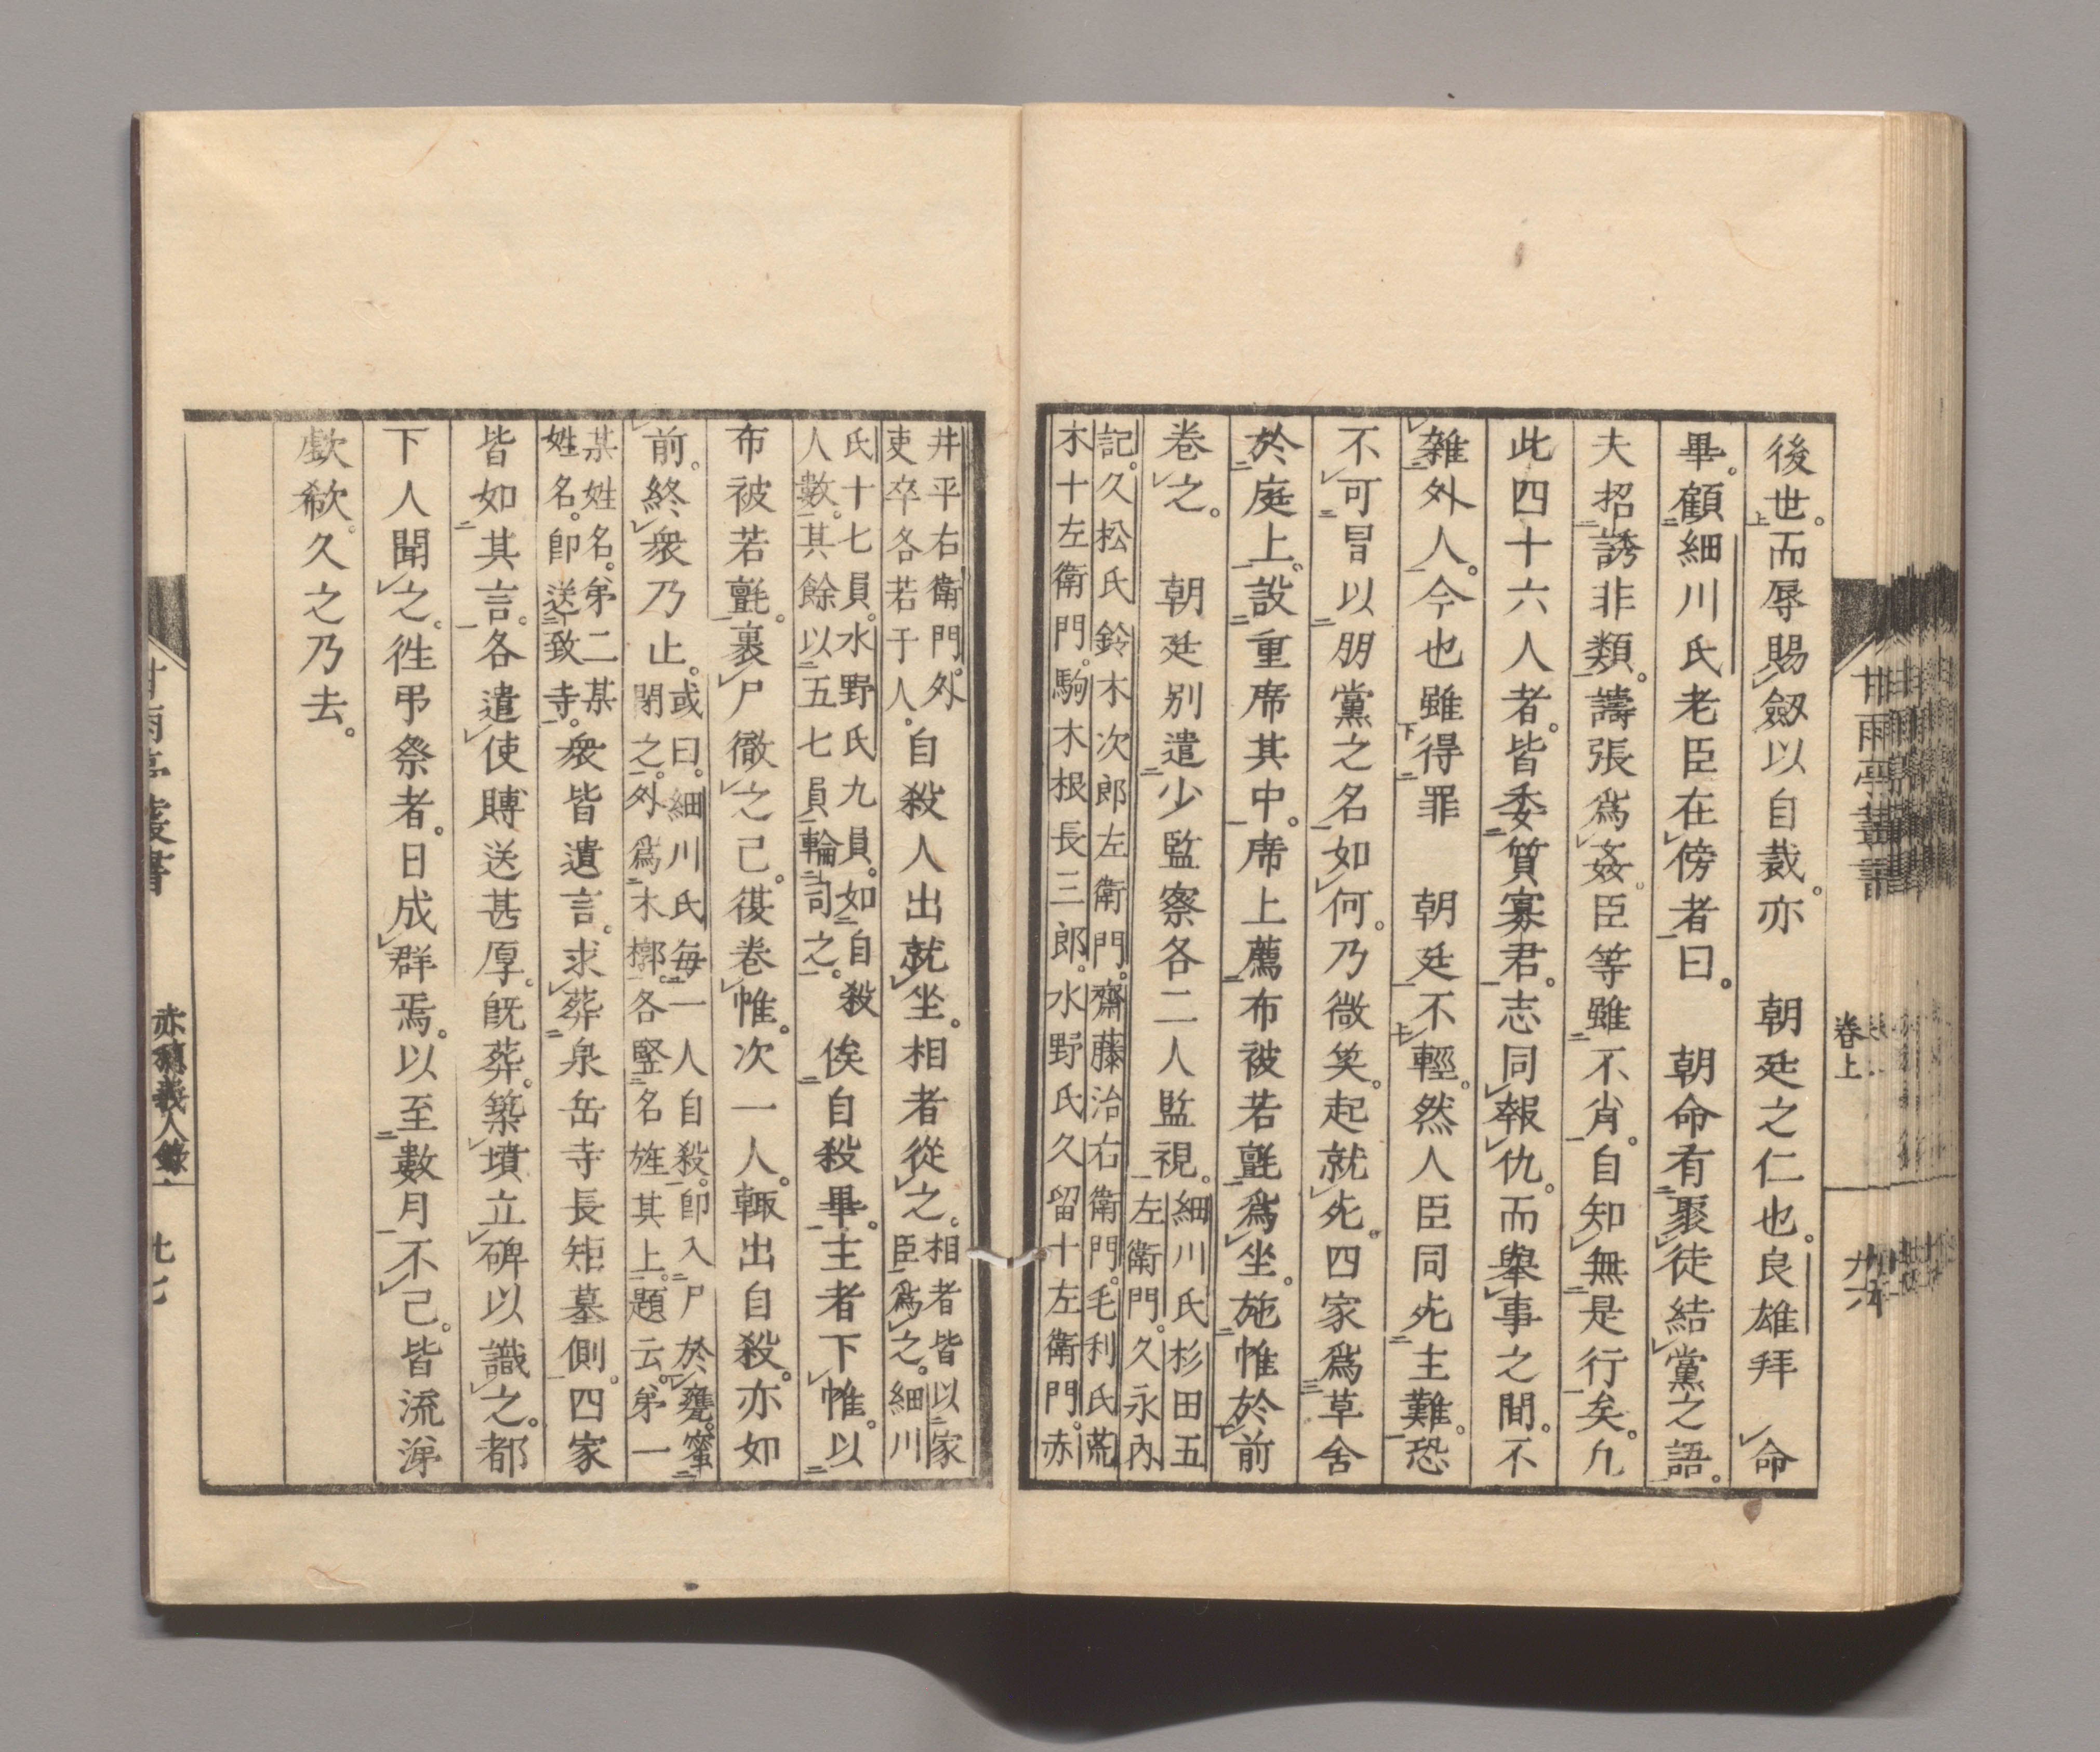 甘雨亭叢書
卷上
後世。而辱賜劔以自裁。亦　朝廷之仁也。良雄拜　命
畢。顧細川氏老臣在傍者曰。　朝命有聚徒結黨之語。
夫招誘非類。譸張爲姦。臣等雖不肖。自知無是行矣。凢
此四十六人者。皆委質寡君。志同報仇。而擧事之間。不
雜外人。今也雖得罪　朝廷不輕。然人臣同死主難。恐
不可冒以朋黨之名如何。乃微笑。起就死。四家爲草舍
於庭上。設重席其中。席上薦布被若氊爲坐。施帷於前
卷之。　朝廷別遣少監察各二人監視。
細川氏杉田五
左衛門。久永內
記。久松氏鈴木次郎左衛門。齋藤治右衛門。毛利氏荒
木十左衛門。駒木根長三郎。水野氏久留十左衛門。赤
井平右衛門。外
吏卒各若于人。
自殺人出就坐。相者從之。
相者皆以家
臣爲之。細川
氏十七員。水野氏九員。如自殺
人數。其餘以五七員輪司之。
俟自殺畢。主者下帷。以
布被若氊。裹尸徹之已。復卷帷。次一人。輙出自殺。亦如
前。終衆乃止。
或曰。細川氏每一人自殺。卽入尸於甕。窒
閉之。外爲木槨。各竪名旌其上。題云。第一
某姓名。第二某
姓名。卽送致寺。
衆皆遺言。求葬泉岳寺長矩墓側。四家
皆如其言。各遣使賻送甚厚。旣葬。築墳立碑以識之。都
下人聞之。徃弔祭者。日成群焉。以至數月不已。皆流涕
歔欷。久之乃去。
甘雨亭叢書
赤穗義人錄